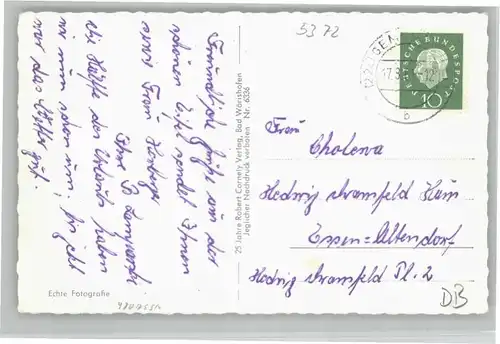 5372
Freundliche Grüße aus der
schönen Eifel sendet Ihnen
Frau
Ihre
die Hälfte des Urlaub haben
wir nun schon um, bis jetzt
war das Wetter gut.
25 Jahre Robert Cornely Verlag, Bad Wörishofen
Jeglicher Nachdruck verboten Nr. 6336
Echte Fotografie
DEUTSCHE BUNDESPOST
10
b
Frau
Cholewa
Hedwig Dransfeld Haus
Essen-Altendorf
Hedwig Dransfeld Pl. 2
DB